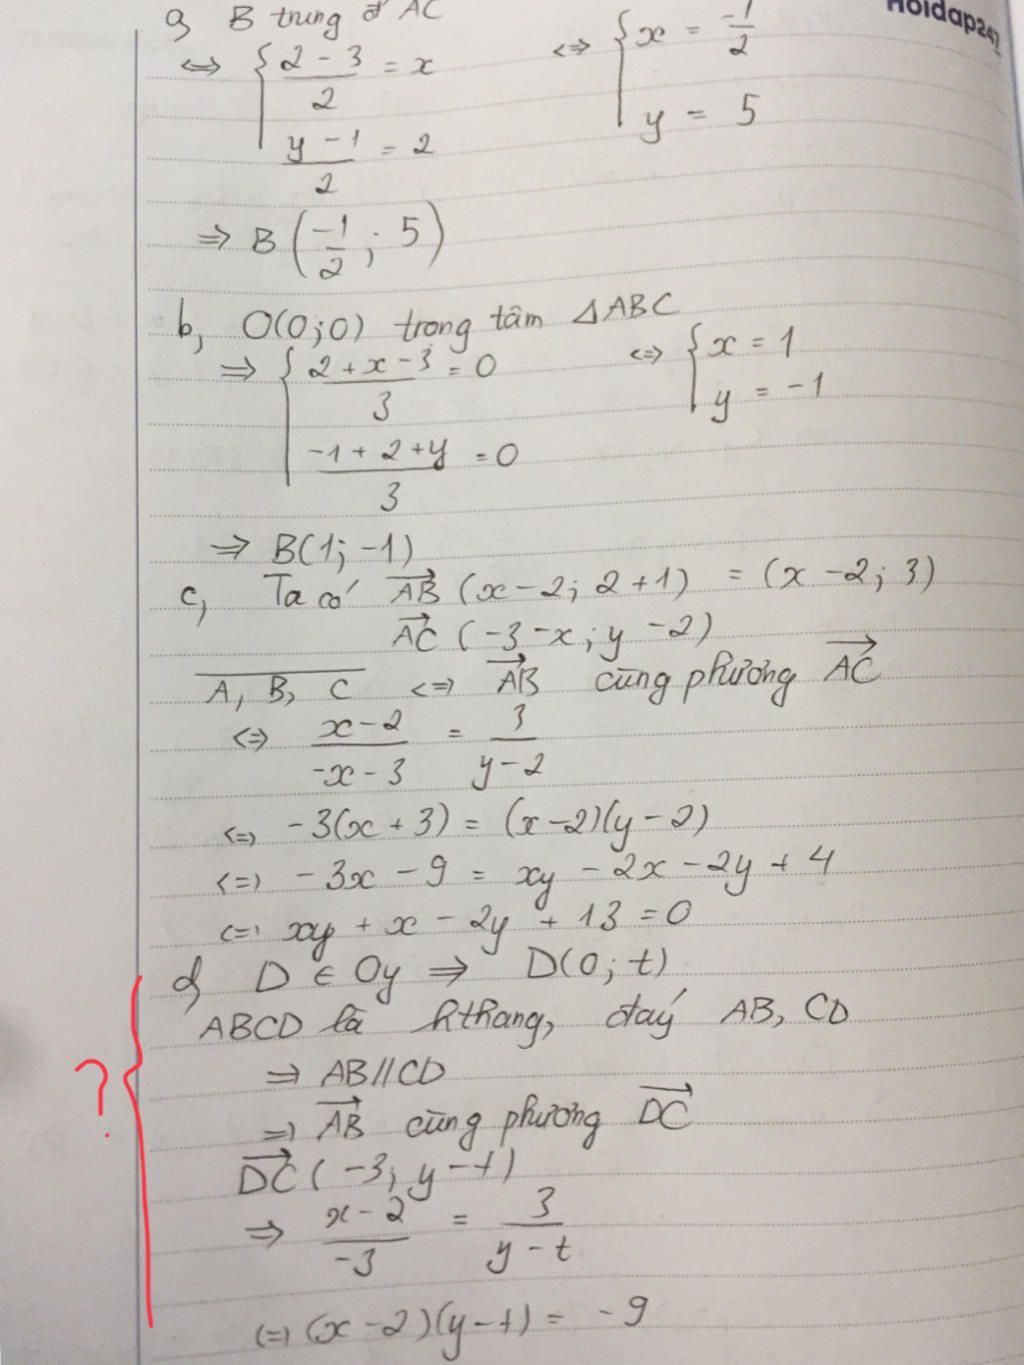 a, B trung đ AC
Hoidap247
⇔ { (2 - 3)/2 = x ⇔ { x = -1/2
(y - 1)/2 = 2 y = 5
⇒ B(-1/2; 5)
b, O(0;0) trọng tâm ΔABC
⇒ { (2 + x - 3)/3 = 0 ⇔ { x = 1
(-1 + 2 + y)/3 = 0 y = -1
⇒ B(1; -1)
c, Ta có AB→ (x - 2; 2 + 1) = (x - 2; 3)
AC→ (-3 - x; y - 2)
A, B, C ⇔ AB→ cùng phương AC→
⇔ (x - 2)/(-x - 3) = 3/(y - 2)
⇔ -3(x + 3) = (x - 2)(y - 2)
⇔ -3x - 9 = xy - 2x - 2y + 4
⇔ xy + x - 2y + 13 = 0
d, D ∈ Oy ⇒ D(0; t)
ABCD là hthang, đáy AB, CD
⇒ AB//CD
?
⇒ AB→ cùng phương DC→
DC→ (-3; y - t)
⇒ (x - 2)/-3 = 3/(y - t)
⇔ (x - 2)(y - t) = -9